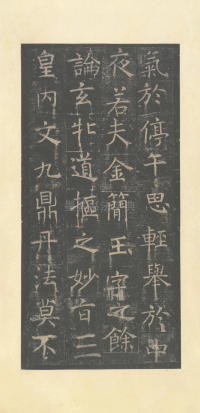 氣於停午思輕舉於中
夜若夫金簡玉字之餘
論玄牝道樞之妙旨三
皇內文九鼎丹法莫不